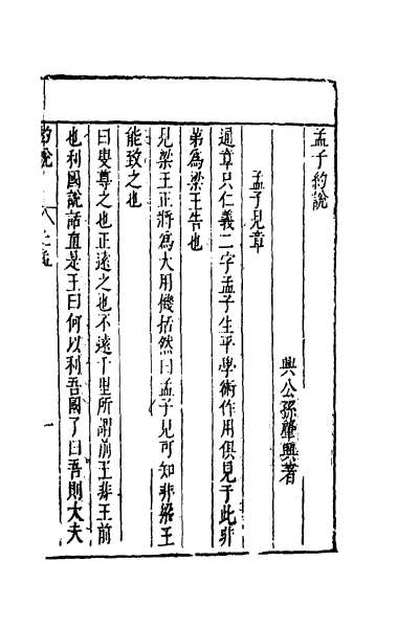 孟子約說
興公孫肇興著
孟子見章
通章只仁義二字孟子生平學術作用俱見于此非
弟為梁王告也
見梁王正將為大用機括然曰孟子見可知非梁王
能致之也
曰叟尊之也正遠之也不遠千里所謂前王非王前
也利國說話直是王曰何以利吾國了曰吾則大夫
約說
上孟
一